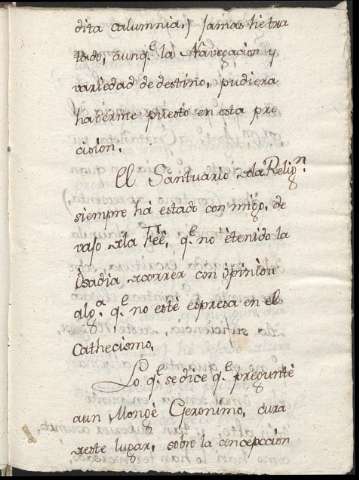 dita calumnia,) Jamas he tra
tado, aunq.ᵉ la Navegacion y
variedad de destino, pudiera
haverme puesto en esta pre
cision.
El Santuario dela Relig.ⁿ
siempre há estado con migo, de
vajo dela Fée, q.ᵉ no étenido la
ósadia decorrer con ópinion
alg.ᵃ q.ᵉ no esté espresa en el
Cathecismo.
Lo q.ᵉ se dice q.ᵉ pregunté
aun Monge Geronimo, cura
deeste lugar, sobre la concepcion